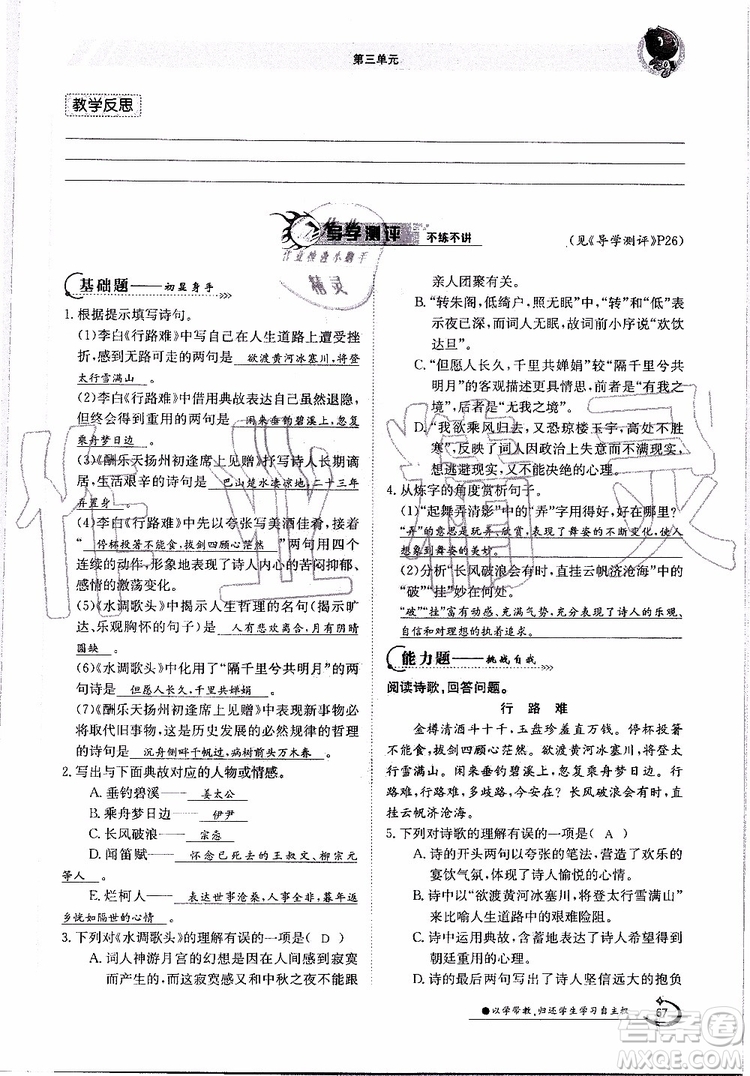 第三单元
教学反思
导学测评 不练不讲
(见《导学测评》P26)
基础题——初显身手
1. 根据提示填写诗句。
(1)李白《行路难》中写自己在人生道路上遭受挫
折,感到无路可走的两句是 欲渡黄河冰塞川,将登
太行雪满山 。
(2)李白《行路难》中借用典故表达自己虽然退隐,
但终会得到重用的两句是 闲来垂钓碧溪上,忽复
乘舟梦日边 。
(3)《酬乐天扬州初逢席上见赠》抒写诗人长期谪
居,生活艰辛的诗句是 巴山楚水凄凉地,二十三年
弃置身 。
(4)《行路难》中先以夸张写美酒佳肴,继而以
“ 停杯投箸不能食,拔剑四顾心茫然 ”两句用四个
连续的动作,形象地表现了诗人内心的苦闷抑郁、
感情的激荡变化。
(5)《水调歌头》中揭示人生哲理的名句(揭示旷
达、乐观胸怀的句子)是 人有悲欢离合,月有阴晴
圆缺 。
(6)《水调歌头》中化用了“隔千里兮共明月”的两
句诗是 但愿人长久,千里共婵娟 。
(7)《酬乐天扬州初逢席上见赠》揭示新事物必
将取代旧事物,这是历史发展的必然规律的哲理
的诗句是 沉舟侧畔千帆过,病树前头万木春 。
2. 写出与下面典故对应的人物或情感。
A. 垂钓碧溪—— 姜太公
B. 乘舟梦日边—— 伊尹
C. 长风破浪—— 宗悫
D. 闻笛赋—— 怀念已死去的王叔文、柳宗元
等人
E. 烂柯人—— 表达世事沧桑,人事全非,暮年返
乡恍如隔世的心情 。
3. 下列对《水调歌头》的理解有误的一项是( D )
A. 词人神游月宫的幻想是因在人间遭遇寂寞
而产生的,而这寂寞又和中秋之夜不能跟
亲人团聚有关。
B. “转朱阁,低绮户,照无眠”中“转”和“低”表
示夜已深,而词人无眠,故前面小序说“欢饮
达旦”。
C. “但愿人长久,千里共婵娟”较“隔千里兮共
明月”的客观描写更具情思,前者为“有我之
境”,后者是“无我之境”。
D. “我欲乘风归去,又恐琼楼玉宇,高处不胜
寒”,反映了词人因政治上失意而不满现实,
想逃避残酷现实的心理。
4. 从炼字的角度赏析句子。
(1)“起舞弄清影”中的“弄”字用的好在哪里?
“弄”的意思是玩弄、欣赏,在这里表现了舞姿的轻盈,形
象写出了舞姿的美妙。
(2)分析“长风破浪会有时,直挂云帆济沧海”中
“破”“挂”妙在何处。
“破”“挂”富有动感、充满气势,充分表现了诗人的乐观、
自信和对理想的执着追求。
能力题——挑战自我
阅读诗歌,回答问题。
行 路 难
金樽清酒斗十千,玉盘珍羞直万钱。停杯投箸
不能食,拔剑四顾心茫然。欲渡黄河冰塞川,将登
太行雪满山。闲来垂钓碧溪上,忽复乘舟梦日边。行
路难,行路难,多歧路,今安在?长风破浪会有时,直
挂云帆济沧海。
5. 下列对诗歌的理解有误的一项是( A )
A. 诗的开头两句以夸张的笔法,营造了欢乐的
宴饮气氛,体现了诗人愉悦的心情。
B. 诗中以“欲渡黄河冰塞川,将登太行雪满山”
来比喻人生道路中的艰难险阻。
C. 诗中运用典故,含蓄地表达了诗人希望得到
朝廷重用的心情。
D. 诗的最后两句写出了诗人坚信远大的抱负
●以学带教,归还学生学习自主权
67
作业精灵
答案圈
MXQE.COM